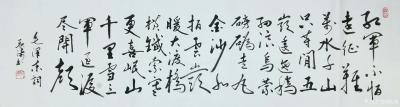 红军不怕
远征難
万水千山
只等闲五
岭逶迤腾
细浪乌蒙
磅礴走泥
丸金沙水
拍雲崖
暖大渡橋
横鐵索寒
更喜岷山
千里雪三
軍過後
尽開顔
毛泽东词
书